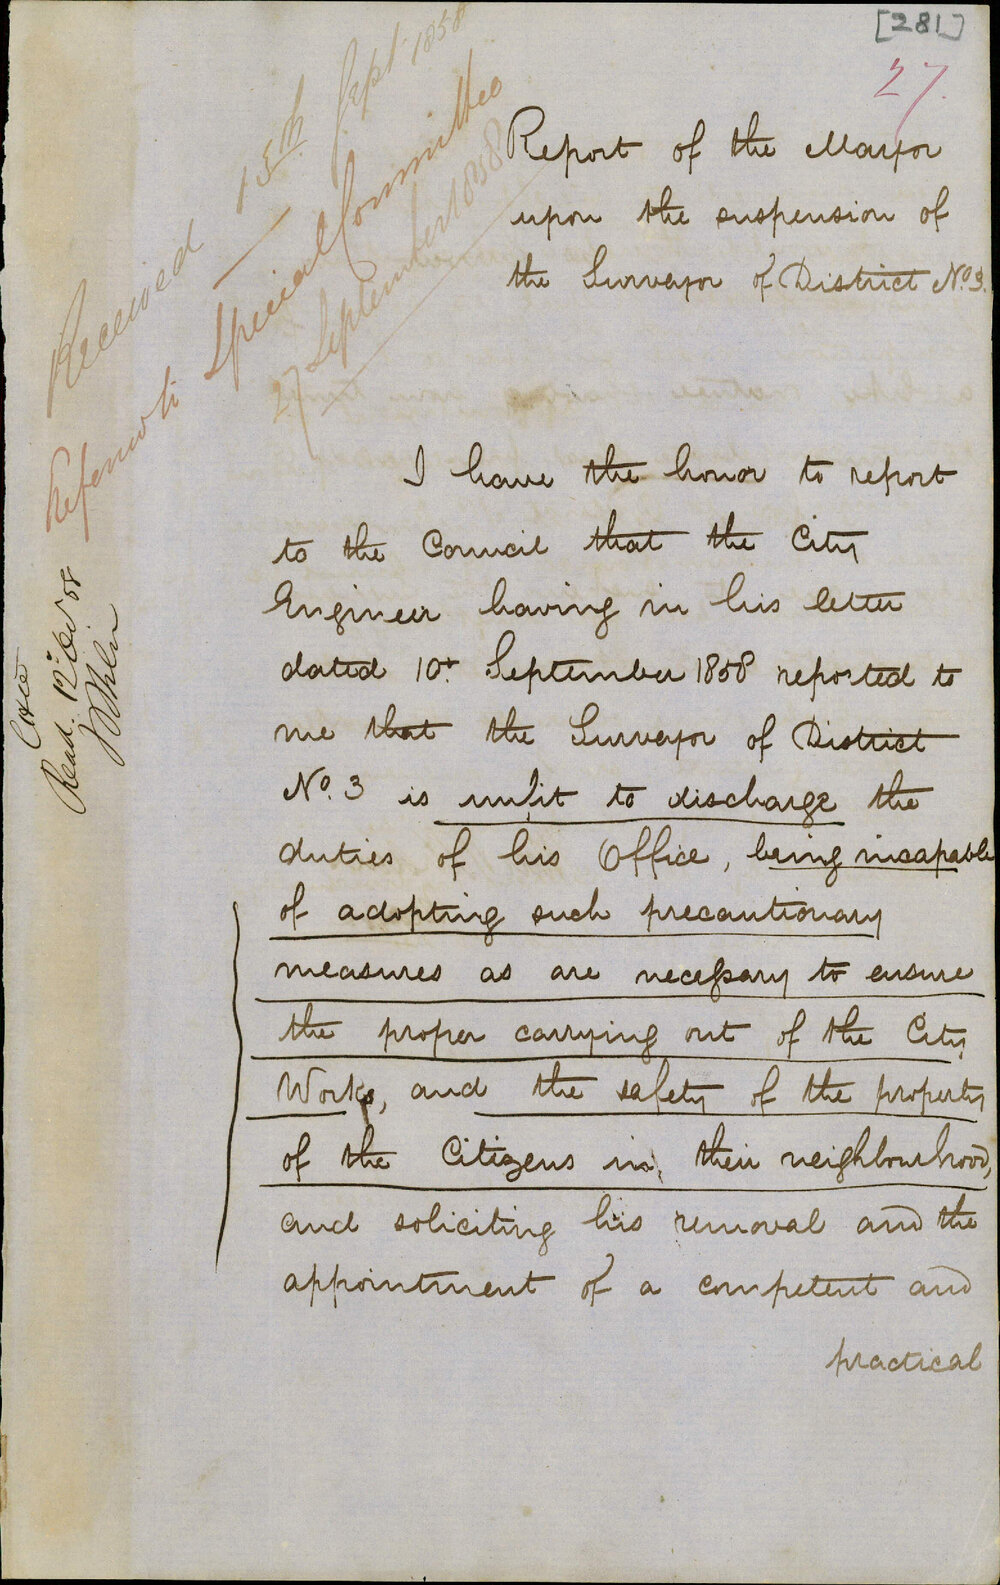 [281]
27.
Received 15th Sept 1858
Referred to Special Committee
27 September 1858
Report of the Mayor
upon the suspension of
the Surveyor of District No. 3.
I have the honor to report
to the Council that the City
Engineer having in his letter
dated 10th September 1858 reported to
me that the Surveyor of District
No. 3 is unfit to discharge the
duties of his Office, being incapable
of adopting such precautionary
measures as are necessary to ensure
the proper carrying out of the City
Works, and the safety of the property
of the Citizens in their neighbourhood,
and soliciting his removal and the
appointment of a competent and
practical
Read. 12